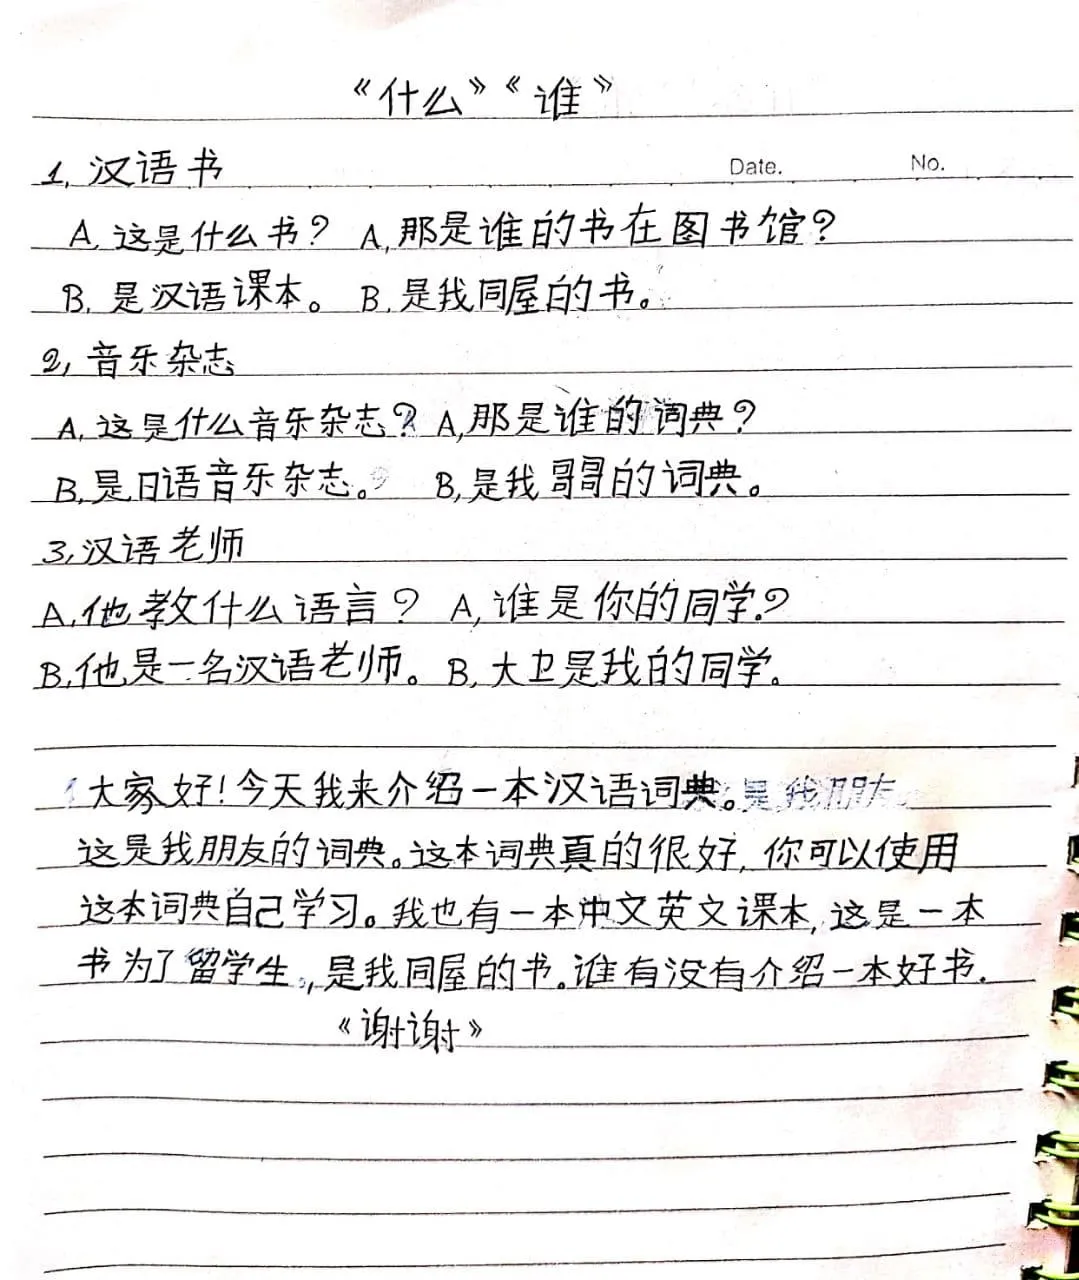 《什么》《谁》
1, 汉语书
Date. No.
A, 这是什么书? A, 那是谁的书在图书馆?
B, 是汉语课本。 B, 是我同屋的书。
2, 音乐杂志
A, 这是什么音乐杂志? A, 那是谁的词典?
B, 是日语音乐杂志。 B, 是我哥哥的词典。
3, 汉语老师
A, 他教什么语言? A, 谁是你的同学?
B, 他是一名汉语老师。 B, 大卫是我的同学。
大家好!今天我来介绍一本汉语词典。是我朋友
这是我朋友的词典。这本词典真的很好, 你可以使用
这本词典自己学习。我也有一本中文英文课本, 这是一本
书为了留学生, 是我同屋的书。谁有没有介绍一本好书.
《谢谢》